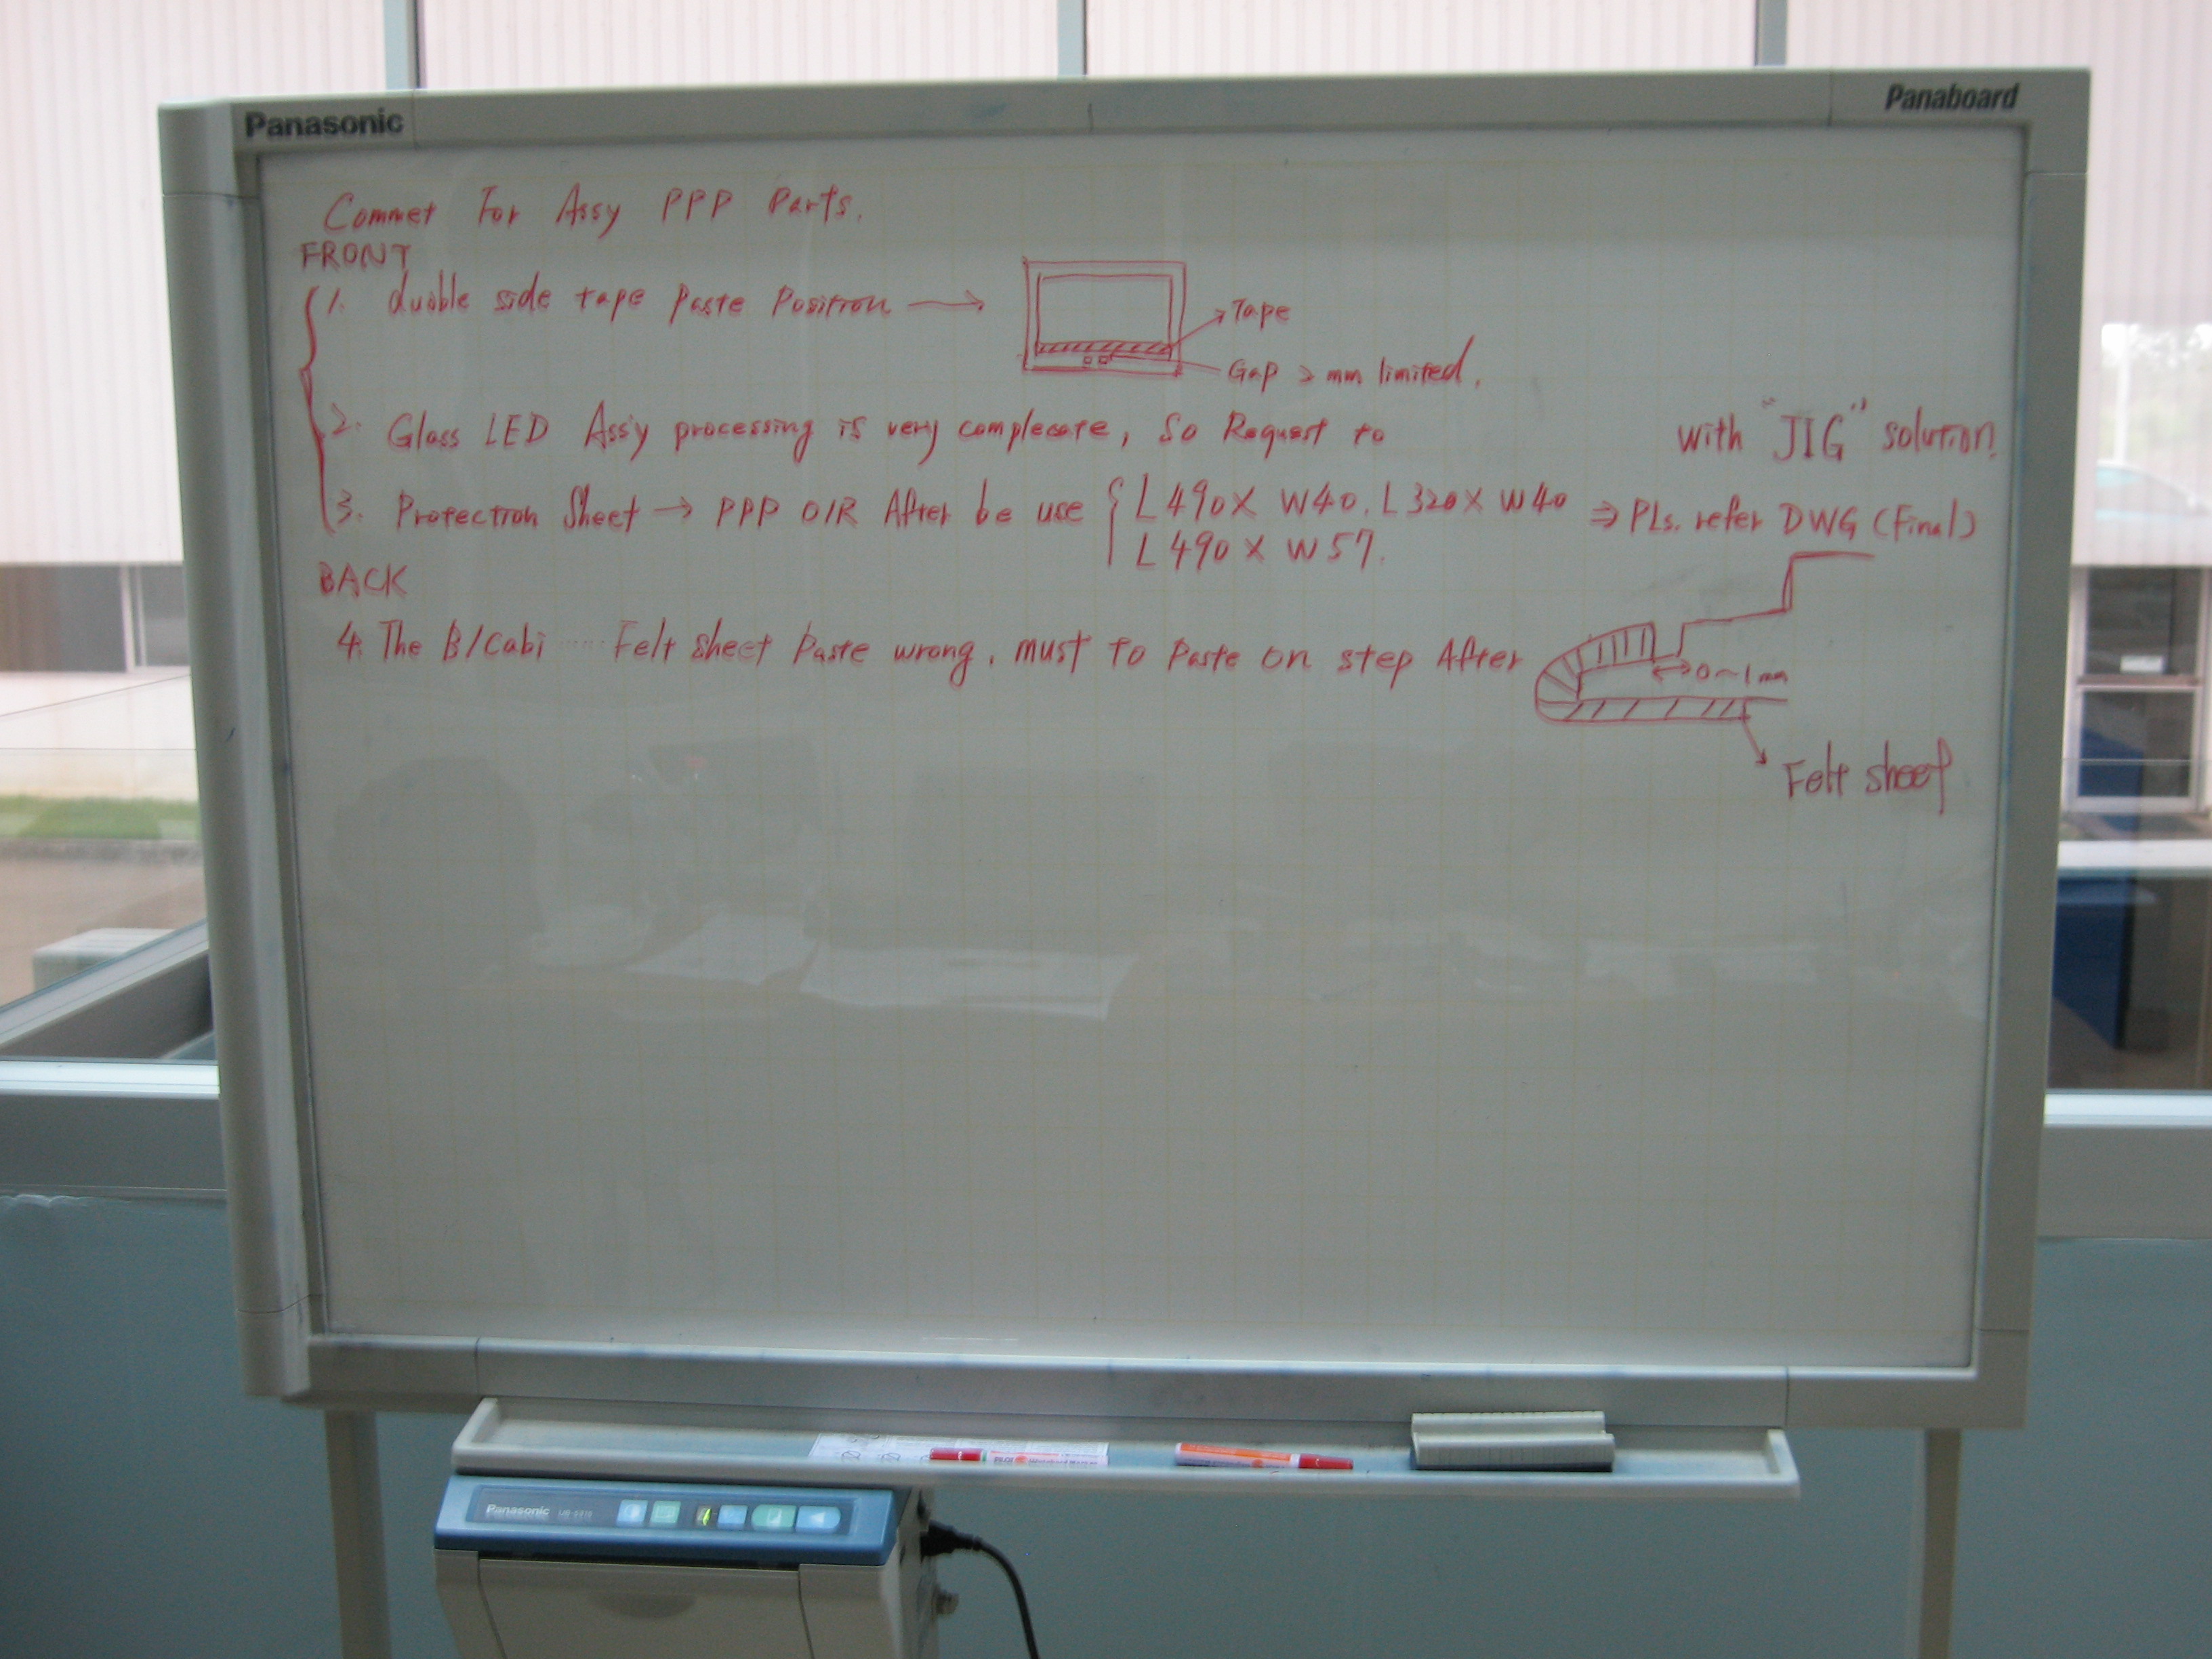 Panasonic
Panaboard
Commet For Assy PPP Parts.
FRONT
1. duoble side tape Paste Position →
Tape
Gap > mm limited.
2. Glass LED Ass'y processing is very complecate, So Request to with "JIG" solution.
3. Protection Sheet → PPP OIR After be use { L490X W40. L320X W40 ⇒ PLs. refer DWG (Final)
L490 X W57.
BACK
4. The B/Cabi ..... Felt sheet Paste wrong. must to Paste on step After
0~1mm
Felt sheet
Panasonic